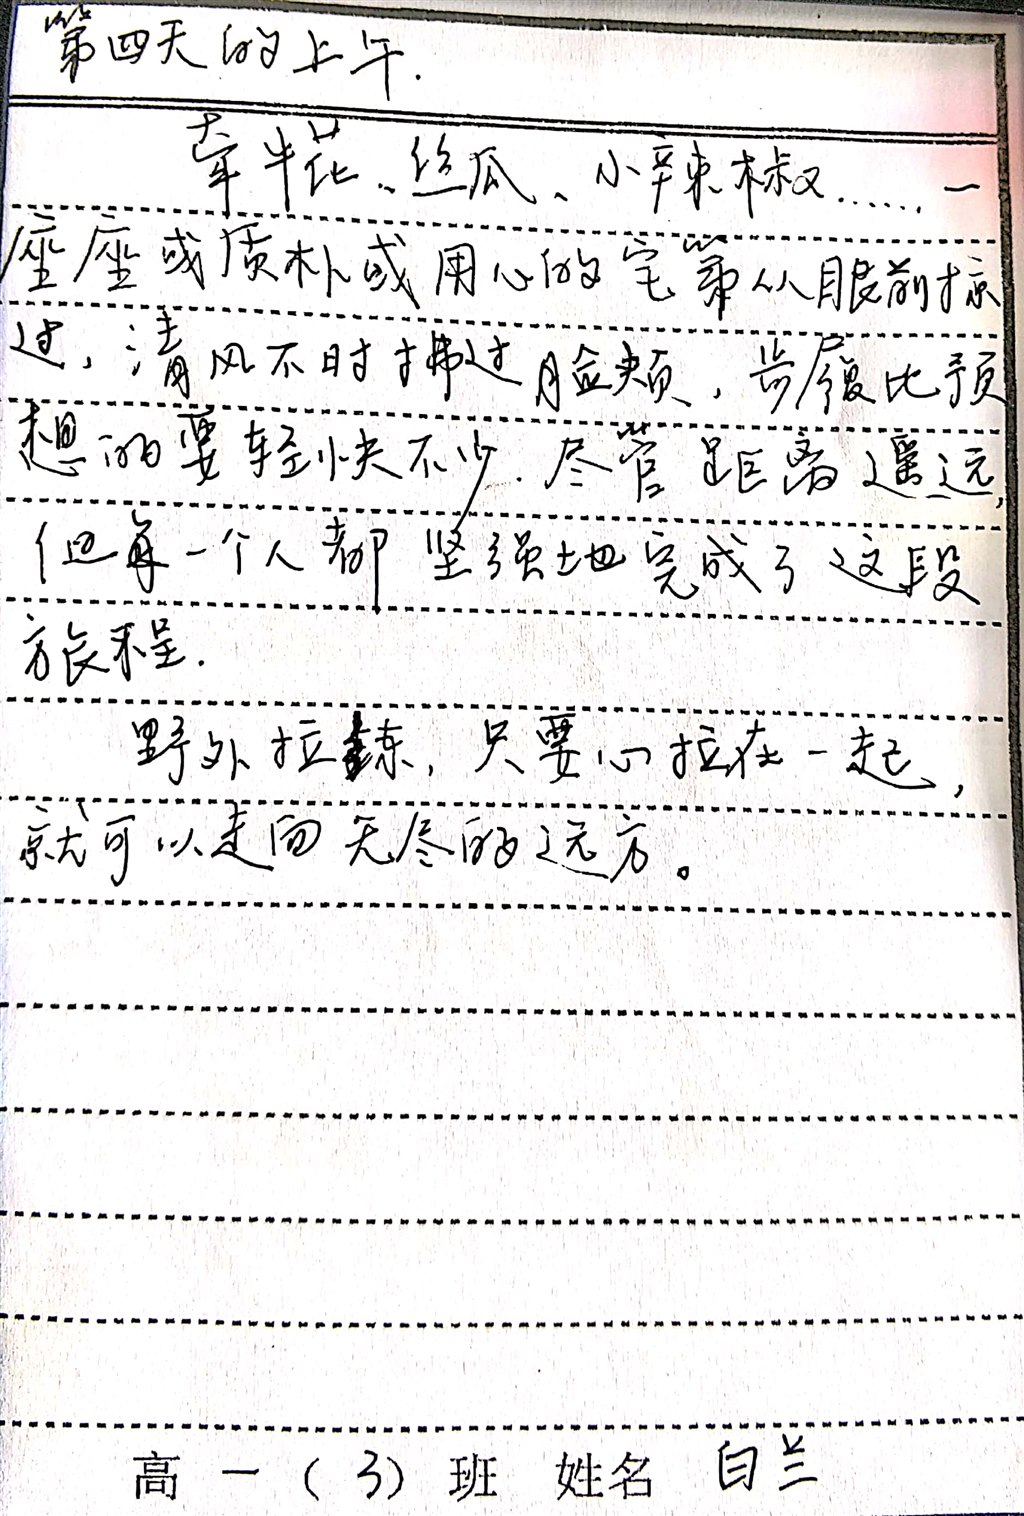 第四天的上午.
牵牛花、丝瓜、小辣椒......一
座座或质朴或用心的宅第从眼前掠
过，清风不时拂过脸颊，步履比预
想的要轻快不少.尽管距离遥远，
但每一个人都坚强地完成了这段
旅程.
野外拉练，只要心拉在一起，
就可以走向无尽的远方。
高一（3）班 姓名 白兰